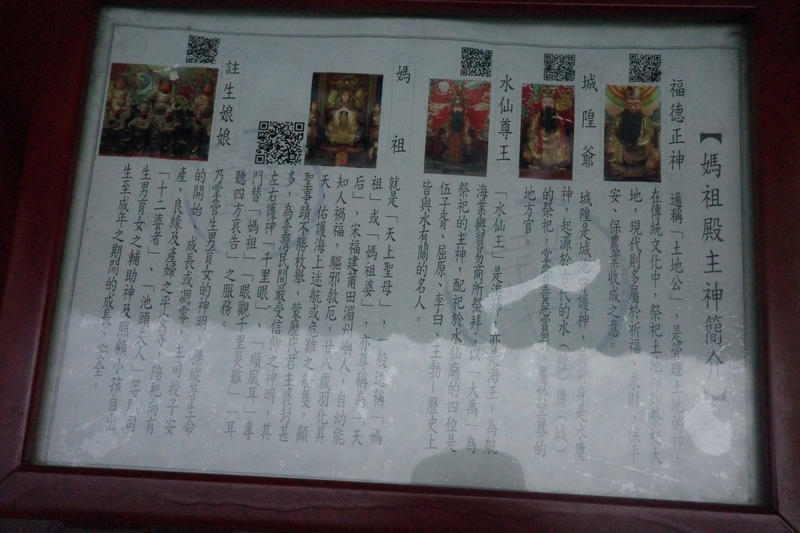 【媽祖殿主神簡介】
福德正神
通稱「土地公」，是管理土地的神，
在傳統文化中，祭祀土地神即祭祀大
地，現代則多屬於祈福、求財、保平
安、保農業收成之意。
城隍爺
城隍是城池守護神，其前身是水庸
神，起源於古代的水（隍）庸（城）
的祭祀，掌管善惡賞罰，屬於空界的
地方官。
水仙尊王
「水仙王」是海神，亦是海王，為航
海業與貿易商所祭拜，以「大禹」為
祭祀的主神，配祀於水仙廟的四位是
伍子胥、屈原、李白、王勃—歷史上
皆與水有關的名人。
媽祖
就是「天上聖母」，一般通稱「媽
祖」或「媽祖婆」，亦尊稱為「天
后」，宋福建莆田湄州嶼人，自幼能
知人禍福，驅邪救厄，廿八歲羽化昇
天，佑護海上迷航或危難之船隻，顯
聖事蹟不勝枚舉，蒙歷代君主褒封甚
多，為臺灣民間最受信仰之神明，其
左右護神「千里眼」、「順風耳」專
門替「媽祖」「眼觀千里災難」「耳
聽四方哀告」之服務。
註生娘娘
乃掌管生男育女的神明，操縱著生命
的開始、成長或凋零，主司授子安
產、良緣及產婦之平安等，陪祀尚有
「十二婆者」、「池頭夫人」等專司
生男育女之輔助神及照顧小孩自出
生至成年之期間的成長、安全。